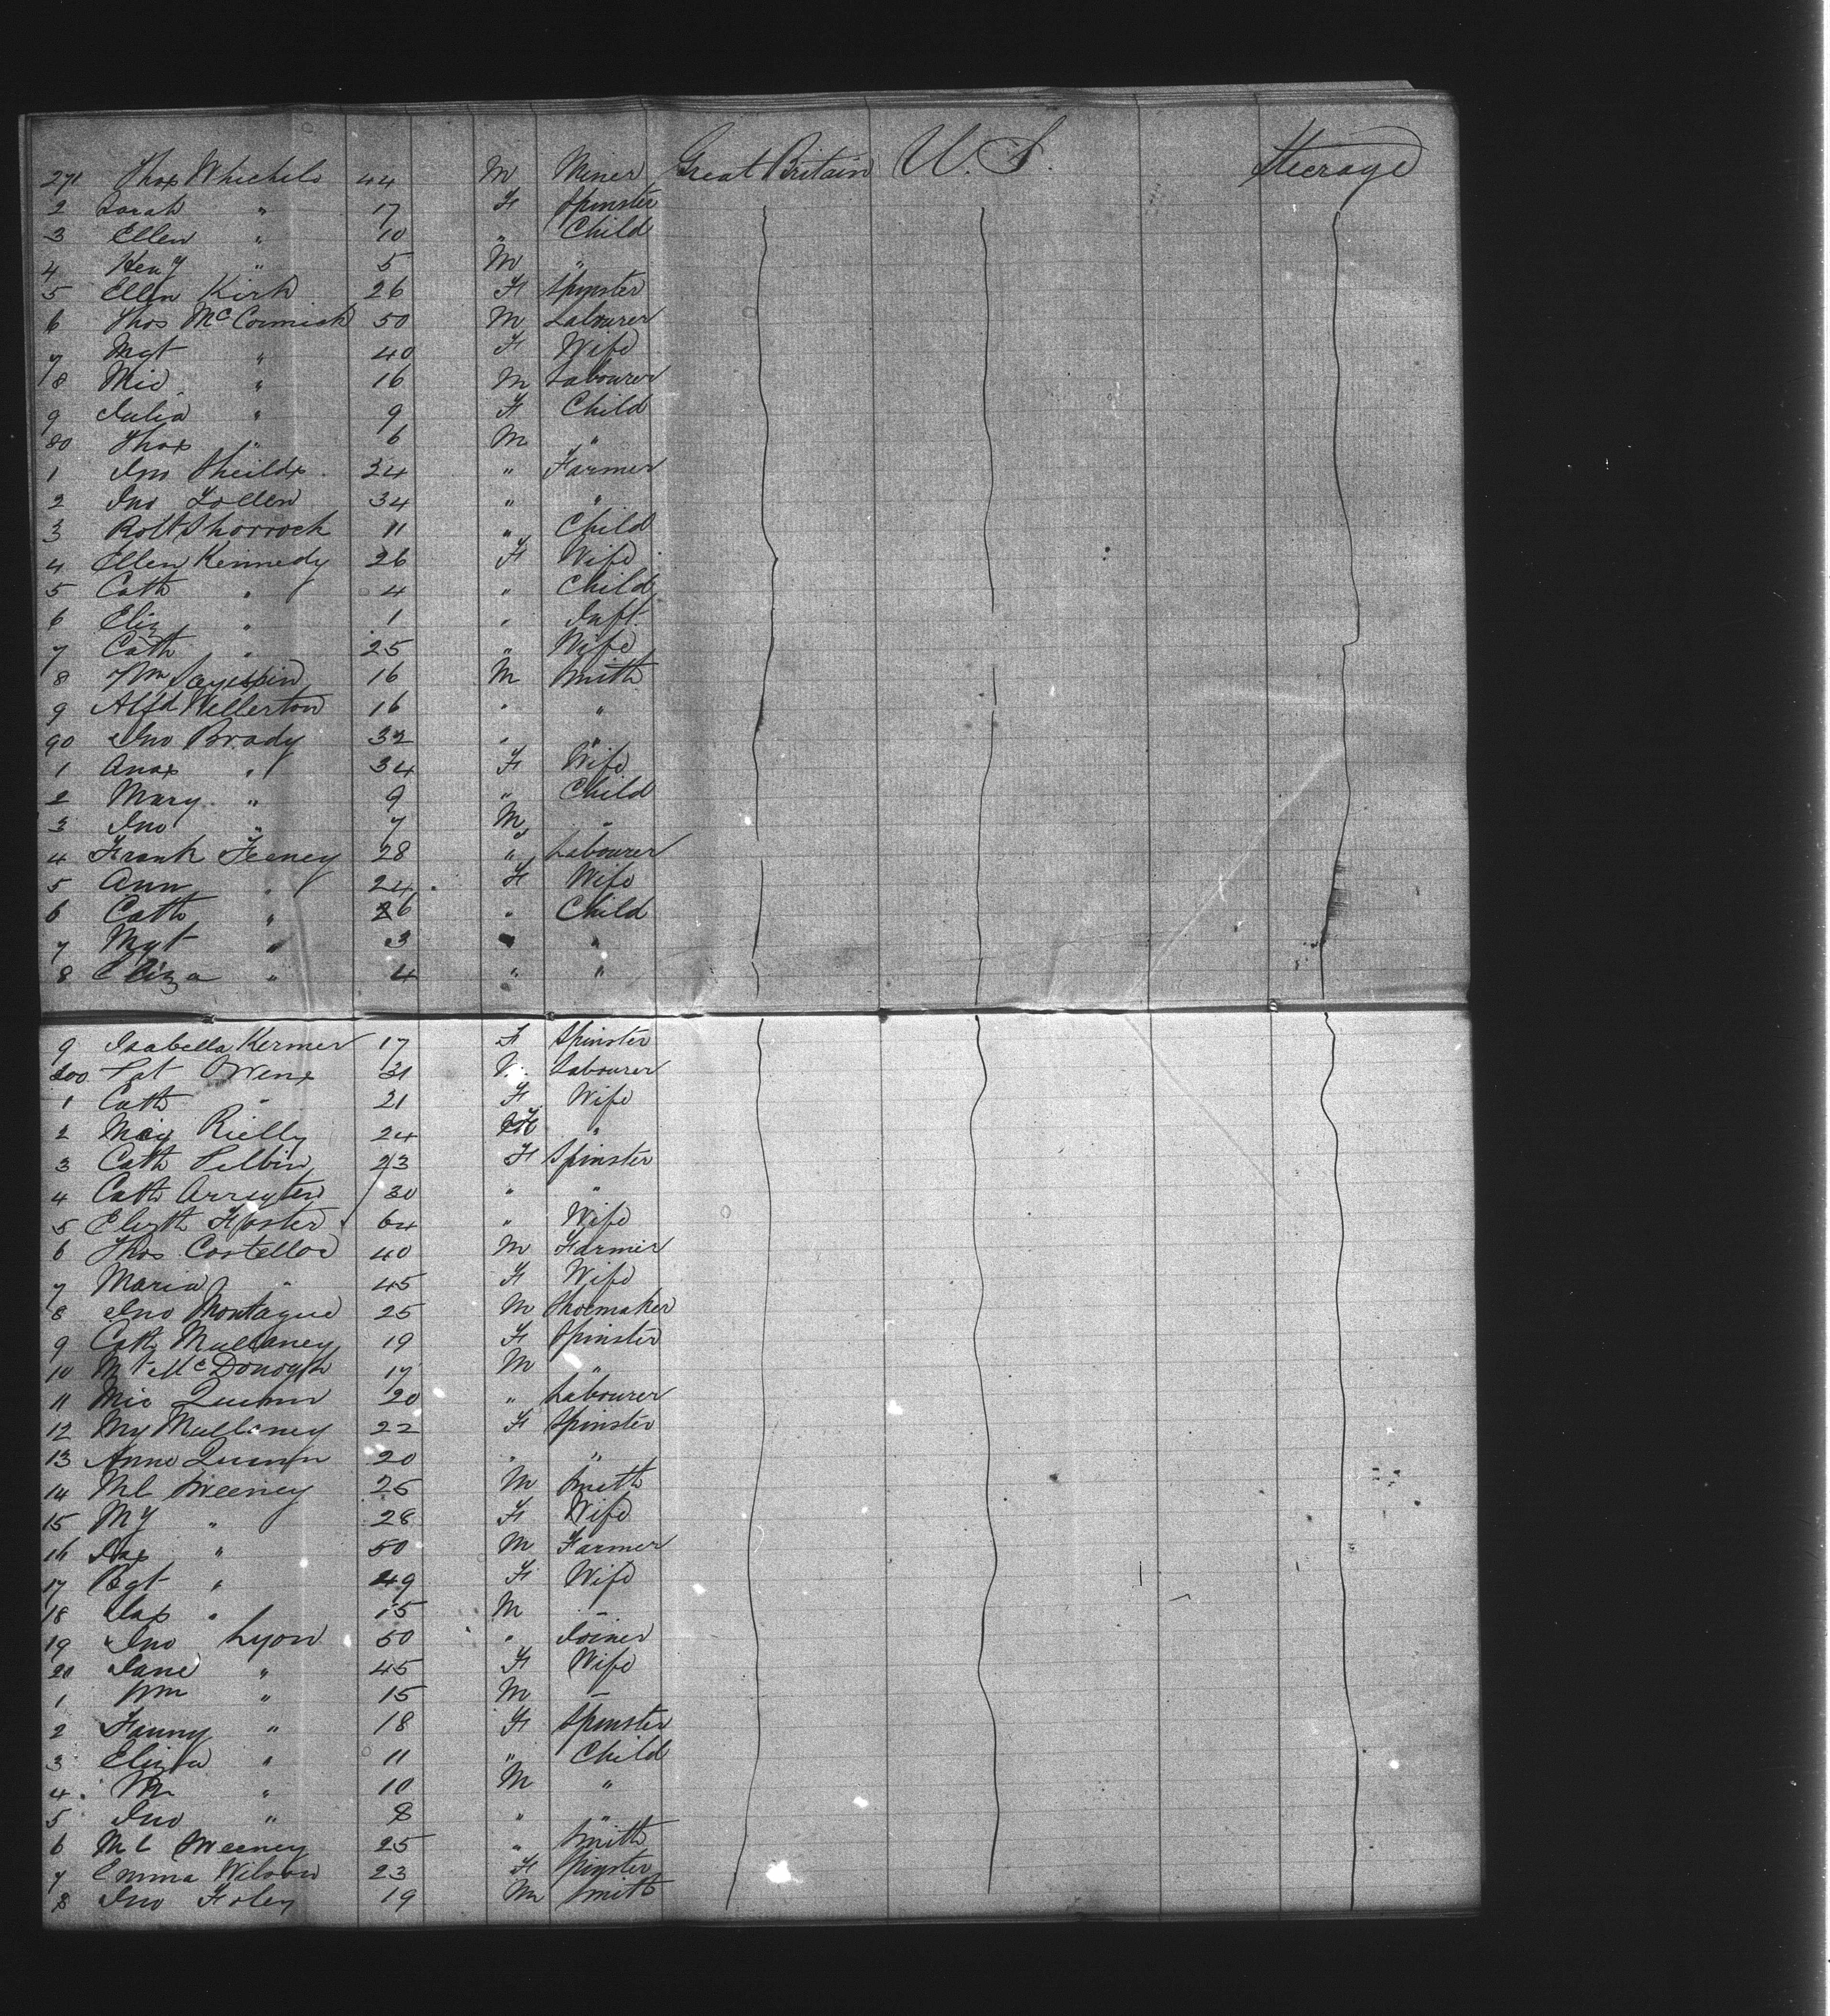 271 Thos Whichels 44 M Miner Great Britain U.S. Steerage
2 Sarah " 17 F Spinster
3 Ellen " 10 " Child
4 Heny " 5 M "
5 Ellen Kirk 26 F Spinster
6 Thos McCormick 50 M Labourer
7 Mgt " 40 F Wife
8 Mic " 16 M Labourer
9 Julia " 9 F Child
80 Thos " 6 M "
1 Jno Sheilds 24 " Farmer
2 Jno 34 " "
3 Robt Shorrock 11 " Child
4 Ellen Kennedy 26 F Wife
5 Cath " 4 " Child
6 Eliz " 1 " Inft.
7 Cath " 25 " Wife
8 Wm 16 M Smith
9 Alfd Wellerton 16 " "
90 Jno Brady 32 " "
1 Anas " 34 F Wife
2 Mary " 9 " Child
3 Jno " 7 M "
4 Frank Feeney 28 " Labourer
5 Ann " 24 F Wife
6 Cath " 6 " Child
7 Mgt " 3 " "
8 Eliza " 4 " "
9 Isabella Kermer 17 F Spinster
300 Pat Owens 31 Labourer
1 Cath " 21 F Wife
2 May Rielly 24 F "
3 Cath 23 F Spinster
4 Cath 30 " "
5 Elizth Foster 64 " Wife
6 Thos Costelloe 40 M Farmer
7 Maria " 45 F Wife
8 Jno Montague 25 M Shoemaker
9 Cath Mullaney 19 F Spinster
10 Mt McDonogh 17 M "
11 Mic Quinn 20 " Labourer
12 My Mullaney 22 F Spinster
13 Anne Quinn 20 " "
14 Ml Sweeney 25 M Smith
15 My " 28 F Wife
16 Jas " 50 M Farmer
17 Bgt " 49 F Wife
18 Jas " 15 M -
19 Jno Lyon 50 " Joiner
20 Jane " 45 F Wife
1 Wm " 15 M -
2 Fanny " 18 F Spinster
3 Eliza " 11 " Child
4 " 10 M "
5 Jno " 8 " "
6 Ml Sweeney 25 " Smith
7 Emma Wilson 23 F Spinster
8 Jno Foley 19 M Smith